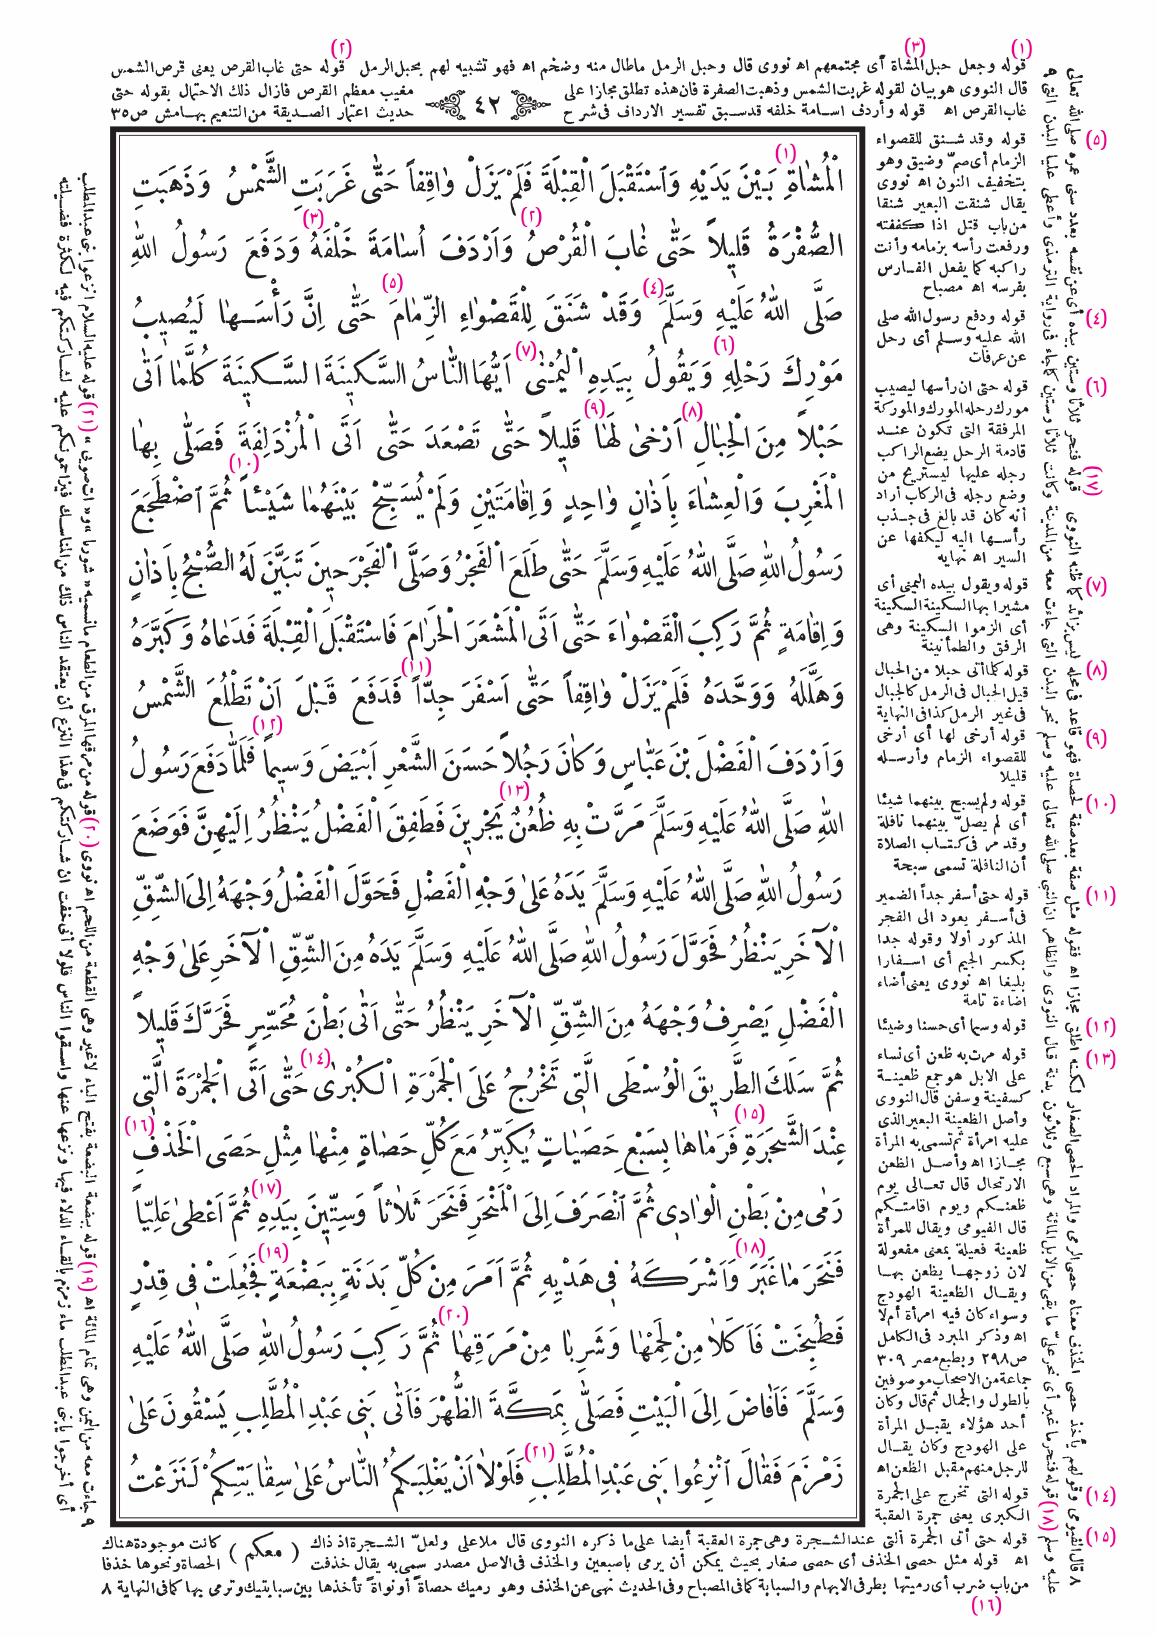 (١) (٣) (٢)
قوله وجعل حبل المشاة أى مجتمعهم اه نووى قال وحبل الرمل ماطال منه وضخم اه فهو تشبيه لهم بحبل الرمل قوله حتى غاب القرص يعنى قرص الشمس
قال النووى هو بيان لقوله غربت الشمس وذهبت الصفرة فان هذه تطلق مجازا على ٤٢ مغيب معظم القرص فازال ذلك الاحتمال بقوله حتى
غاب القرص اه قوله وأردف اسامة خلفه قد سبق تفسير الارداف فى شرح حديث اعتمار الصديقة من التنعيم بهامش ص٣٥
الْمُشَاةِ بَيْنَ يَدَيْهِ وَاسْتَقْبَلَ الْقِبْلَةَ فَلَمْ يَزَلْ وَاقِفاً حَتَّى غَرَبَتِ الشَّمْسُ وَذَهَبَتِ
الصُّفْرَةُ قَلِيلاً حَتَّى غَابَ الْقُرْصُ وَاَرْدَفَ اُسَامَةَ خَلْفَهُ وَدَفَعَ رَسُولُ اللهِ
صَلَّى اللهُ عَلَيْهِ وَسَلَّمَ وَقَدْ شَنَقَ لِلْقَصْوَاءِ الزِّمَامَ حَتَّى اِنَّ رَأْسَهَا لَيُصِيبُ
مَوْرِكَ رَحْلِهِ وَيَقُولُ بِيَدِهِ الْيُمْنَى اَيُّهَا النَّاسُ السَّكِينَةَ السَّكِينَةَ كُلَّمَا اَتَى
حَبْلاً مِنَ الْحِبَالِ اَرْخَى لَهَا قَلِيلاً حَتَّى تَصْعَدَ حَتَّى اَتَى الْمُزْدَلِفَةَ فَصَلَّى بِهَا
الْمَغْرِبَ وَالْعِشَاءَ بِاَذَانٍ وَاحِدٍ وَاِقَامَتَيْنِ وَلَمْ يُسَبِّحْ بَيْنَهُمَا شَيْئاً ثُمَّ اضْطَجَعَ
رَسُولُ اللهِ صَلَّى اللهُ عَلَيْهِ وَسَلَّمَ حَتَّى طَلَعَ الْفَجْرُ وَصَلَّى الْفَجْرَ حِينَ تَبَيَّنَ لَهُ الصُّبْحُ بِاَذَانٍ
وَاِقَامَةٍ ثُمَّ رَكِبَ الْقَصْوَاءَ حَتَّى اَتَى الْمَشْعَرَ الْحَرَامَ فَاسْتَقْبَلَ الْقِبْلَةَ فَدَعَاهُ وَكَبَّرَهُ
وَهَلَّلَهُ وَوَحَّدَهُ فَلَمْ يَزَلْ وَاقِفاً حَتَّى اَسْفَرَ جِدّاً فَدَفَعَ قَبْلَ اَنْ تَطْلُعَ الشَّمْسُ
وَاَرْدَفَ الْفَضْلَ بْنَ عَبَّاسٍ وَكَانَ رَجُلاً حَسَنَ الشَّعْرِ اَبْيَضَ وَسِيماً فَلَمَّا دَفَعَ رَسُولُ
اللهِ صَلَّى اللهُ عَلَيْهِ وَسَلَّمَ مَرَّتْ بِهِ ظُعُنٌ يَجْرِينَ فَطَفِقَ الْفَضْلُ يَنْظُرُ اِلَيْهِنَّ فَوَضَعَ
رَسُولُ اللهِ صَلَّى اللهُ عَلَيْهِ وَسَلَّمَ يَدَهُ عَلَى وَجْهِ الْفَضْلِ فَحَوَّلَ الْفَضْلُ وَجْهَهُ اِلَى الشِّقِّ
الْآخَرِ يَنْظُرُ فَحَوَّلَ رَسُولُ اللهِ صَلَّى اللهُ عَلَيْهِ وَسَلَّمَ يَدَهُ مِنَ الشِّقِّ الْآخَرِ عَلَى وَجْهِ
الْفَضْلِ يَصْرِفُ وَجْهَهُ مِنَ الشِّقِّ الْآخَرِ يَنْظُرُ حَتَّى اَتَى بَطْنَ مُحَسِّرٍ فَحَرَّكَ قَلِيلاً
ثُمَّ سَلَكَ الطَّرِيقَ الْوُسْطَى الَّتِى تَخْرُجُ عَلَى الْجَمْرَةِ الْكُبْرَى حَتَّى اَتَى الْجَمْرَةَ الَّتِى
عِنْدَ الشَّجَرَةِ فَرَمَاهَا بِسَبْعِ حَصَيَاتٍ يُكَبِّرُ مَعَ كُلِّ حَصَاةٍ مِنْهَا مِثْلِ حَصَى الْخَذْفِ
رَمَى مِنْ بَطْنِ الْوَادِى ثُمَّ انْصَرَفَ اِلَى الْمَنْحَرِ فَنَحَرَ ثَلَاثاً وَسِتِّينَ بِيَدِهِ ثُمَّ اَعْطَى عَلِيّاً
فَنَحَرَ مَا غَبَرَ وَاَشْرَكَهُ فِى هَدْيِهِ ثُمَّ اَمَرَ مِنْ كُلِّ بَدَنَةٍ بِبَضْعَةٍ فَجُعِلَتْ فِى قِدْرٍ
فَطُبِخَتْ فَاَكَلَا مِنْ لَحْمِهَا وَشَرِبَا مِنْ مَرَقِهَا ثُمَّ رَكِبَ رَسُولُ اللهِ صَلَّى اللهُ عَلَيْهِ
وَسَلَّمَ فَاَفَاضَ اِلَى الْبَيْتِ فَصَلَّى بِمَكَّةَ الظُّهْرَ فَاَتَى بَنِى عَبْدِ الْمُطَّلِبِ يَسْقُونَ عَلَى
زَمْزَمَ فَقَالَ انْزِعُوا بَنِى عَبْدِ الْمُطَّلِبِ فَلَوْلَا اَنْ يَغْلِبَكُمُ النَّاسُ عَلَى سِقَايَتِكُمْ لَنَزَعْتُ
(٥) قوله وقد شنق للقصواء
الزمام أى ضمّ وضيق وهو
بتخفيف النون اه نووى
يقال شنقت البعير شنقا
من باب قتل اذا كففته
ورفعت رأسه بزمامه وأنت
راكبه كما يفعل الفارس
بفرسه اه مصباح
(٤) قوله ودفع رسول الله صلى
الله عليه وسلم أى رحل
عن عرفات
(٦) قوله حتى ان رأسها ليصيب
مورك رحله المورك والموركة
المرفقة التى تكون عند
قادمة الرحل يضع الراكب
رجله عليها ليستريح من
وضع رجله فى الركاب أراد
أنه كان قد بالغ فى جذب
رأسها اليه ليكفها عن
السير اه نهايه
(٧) قوله ويقول بيده اليمنى أى
مشيرا بها السكينة السكينة
أى الزموا السكينة وهى
الرفق والطمأنينة
(٨) قوله كلما أتى حبلا من الحبال
قيل الحبال فى الرمل كالجبال
فى غير الرمل كذا فى النهاية
(٩) قوله أرخى لها أى أرخى
للقصواء الزمام وأرسله
قليلا
(١٠) قوله ولم يسبح بينهما شيئا
أى لم يصلّ بينهما نافلة
وقد مر فى كتاب الصلاة
أن النافلة تسمى سبحة
(١١) قوله حتى أسفر جداً الضمير
فى أسفر يعود الى الفجر
المذكور أولا وقوله جدا
بكسر الجيم أى اسفارا
بليغا اه نووى يعنى أضاء
اضاءة تامة
(١٢) قوله وسيما أى حسنا وضيئا
(١٣) قوله مرت به ظعن أى نساء
على الابل هو جمع ظعينة
كسفينة وسفن قال النووى
وأصل الظعينة البعير الذى
عليه امرأة ثم تسمى به المرأة
مجازا اه وأصل الظعن
الارتحال قال تعالى يوم
ظعنكم ويوم اقامتكم
قال الفيومى ويقال للمرأة
ظعينة فعيلة بمعنى مفعولة
لان زوجها يظعن بها
ويقال الظعينة الهودج
وسواء كان فيه امرأة أم لا
اه وذكر المبرد فى الكامل
ص٢٩٨ وبطبع مصر ٣٠٩
جماعة من الاصحاب موصوفين
بالطول والجمال ثم قال وكان
أحد هؤلاء يقبل المرأة
على الهودج وكان يقال
للرجل منهم مقبل الظعن اه
(١٤) قوله التى تخرج على الجمرة
الكبرى يعنى جمرة العقبة
(١٥) قوله حتى أتى الجمرة التى عند الشجرة وهى جمرة العقبة أيضا على ما ذكره النووى قال ملا على ولعلّ الشجرة اذ ذاك (معكم) كانت موجودة هناك
اه قوله مثل حصى الخذف أى حصى صغار بحيث يمكن أن يرمى باصبعين والخذف فى الاصل مصدر سمى به يقال خذفت الحصاة ونحوها خذفا
من باب ضرب أى رميتها بطرفى الابهام والسبابة كما فى المصباح وفى الحديث نهى عن الخذف وهو رميك حصاة أو نواة تأخذها بين سبابتيك وترمى بها كما فى النهاية ٨
(١٦)
٨ قال الفيومى وقولهم يأخذ حصى الخذف معناه حصى الرمى والمراد الحصى الصغار لكنه اطلق مجازا اه فقوله مثل صفة بعد صفة لحصاة فهو قاعد فى محله ليس بزائد كما ظنه النووى (١٧) قوله فنحر ثلاثا وستين بيده أى عن نفسه بعدد سنى عمره صلى الله تعالى
عليه وسلم (١٨) قوله فنحر ما غبر أى نحر علىّ ما بقى من الابل المائة وهى سبع وثلاثون بدنة قال النووى والظاهر ان النبى صلى الله تعالى عليه وسلم نحر البدن التى جاءت معه من المدينة وكانت ثلاثا وستين كما جاء فى رواية الترمذى وأعطى عليا البدن التى ٩
٩ جاءت معه من اليمن وهى تمام المائة اه (١٩) قوله ببضعة البضعة بفتح الباء لاغير وهى القطعة من اللحم اه نووى (٢٠) قوله من مرقها المرق من الطعام مانسميه « شوربا » و « ات صويى » (٢١) قوله عليه السلام انزعوا بنى عبدالمطلب
أى أخرجوا يابنى عبدالمطلب ماء زمزم بالقاء الدلاء فيها ونزعها عنها واسقوا الناس فلولا أنى خفت ان شاركتكم فى هذا النزع أن يعتقد الناس ذلك من المناسك فيزاحمونكم عليه لشاركتكم فيه لكثرة فضيلته